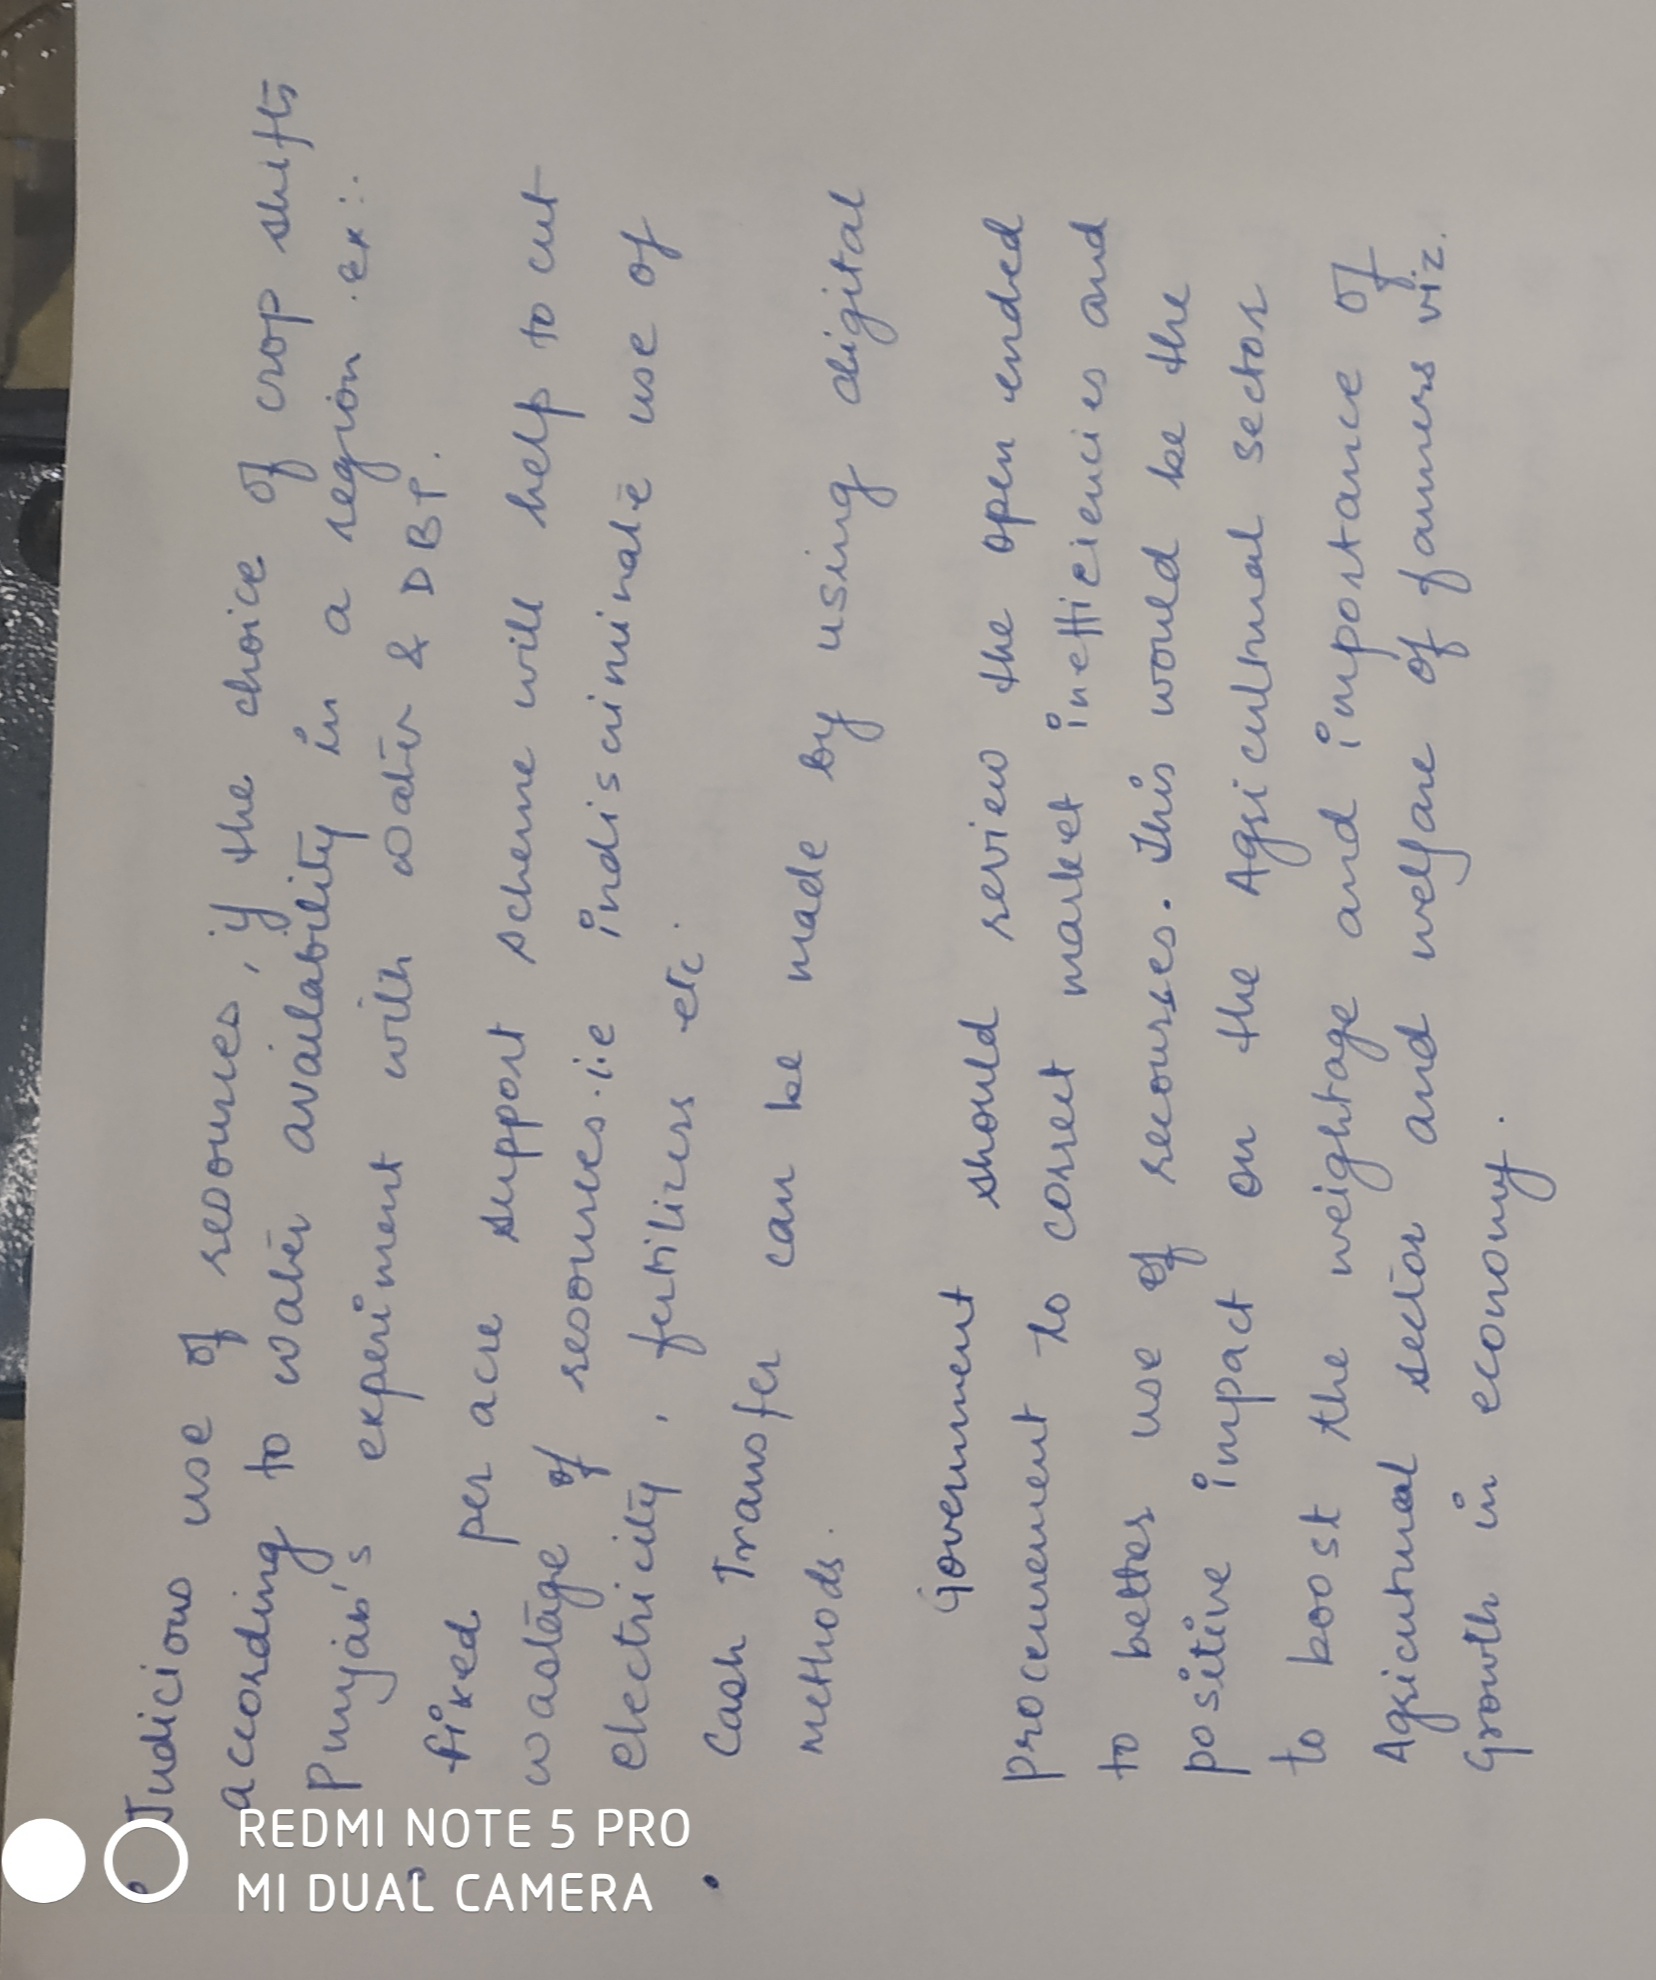 • Judicious use of resources, if the choice of crop shifts
according to water availability in a region. ex:.
Punjab's experiment with water & DBT.
• fixed per acre support scheme will help to cut
wastage of resources. i.e indiscriminate use of
electricity, fertilizers etc.
• Cash Transfer can be made by using digital
methods.
Government should review the open ended
procurement to correct market inefficiencies and
to better use of recourses. This would be the
positive impact on the Agricultural sector
to boost the weightage and importance of
Agricultural sector and welfare of farmers viz.
Growth in economy.
REDMI NOTE 5 PRO
MI DUAL CAMERA